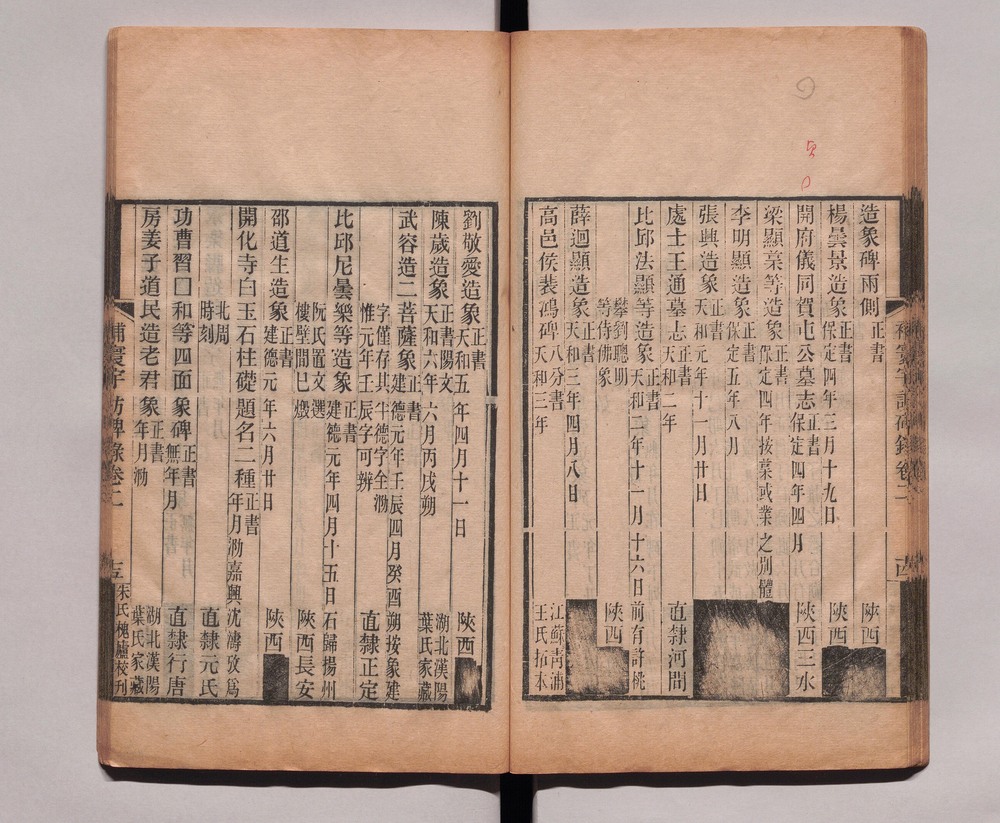 造象碑兩側正書 陝西
楊曇景造象正書保定四年三月十九日 陝西
開府儀同賀屯公墓志正書保定四年四月 陝西三水
梁顯稾等造象正書保定四年按藁或業之別體
李明顯造象正書保定五年八月
張興造象正書天和元年十一月廿日
處士王通墓志正書天和二年 直隸河間
比邱法顯等造象正書天和二年十一月十六日前有許桃
攀劉聰明等侍佛象 陝西
薛迴顯造象正書天和三年四月八日
高邑侯裴鴻碑八分書天和三年 江蘇青浦王氏拓本
補寰宇訪碑錄卷二 十四
劉敬愛造象正書天和五年四月十一日 陝西
陳歲造象正書陽文天和六年六月丙戌朔 湖北漢陽葉氏家藏
武容造二菩薩象正書建德元年壬辰四月癸酉朔按象建
字僅存其半德字全泐惟元年壬辰字可辨 直隸正定
比邱尼曇樂等造象正書建德元年四月十五日石歸揚州
阮氏置文選樓壁間巳燬 陝西長安
邵道生造象正書建德元年六月廿日 陝西
開化寺白玉石柱礎題名二種正書年月泐嘉興沈濤攷爲
北周時刻 直隸元氏
功曹習□和等四面象碑正書無年月 直隸行唐
房姜子道民造老君象正書年月泐 湖北漢陽葉氏家藏
補寰宇訪碑錄卷二 十五 朱氏槐廬校刊